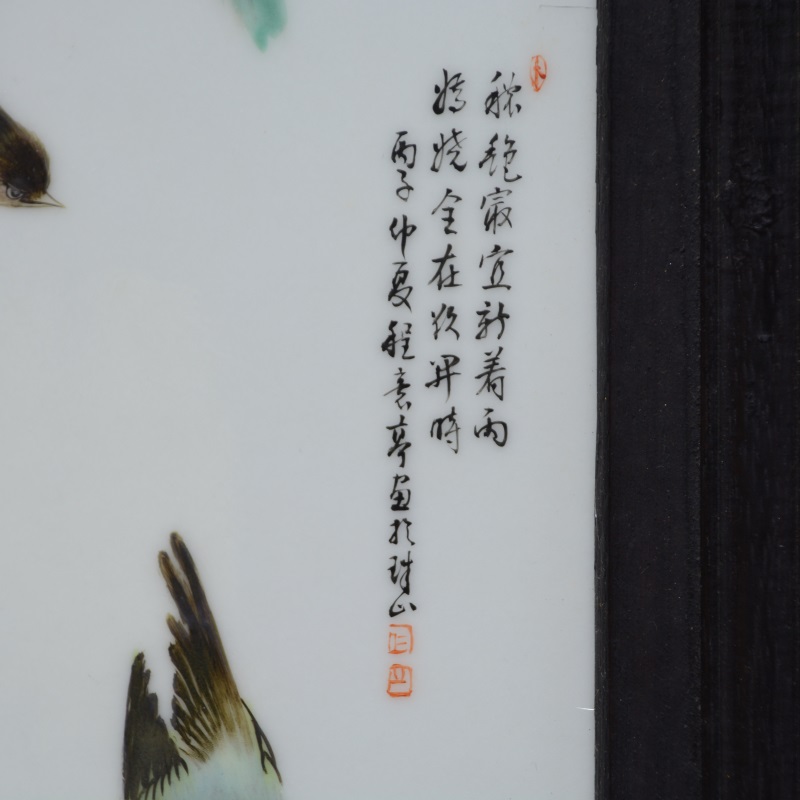 秾艳最宜新着雨
嬌娆全在欲開時
丙子仲夏程意亭画於珠山